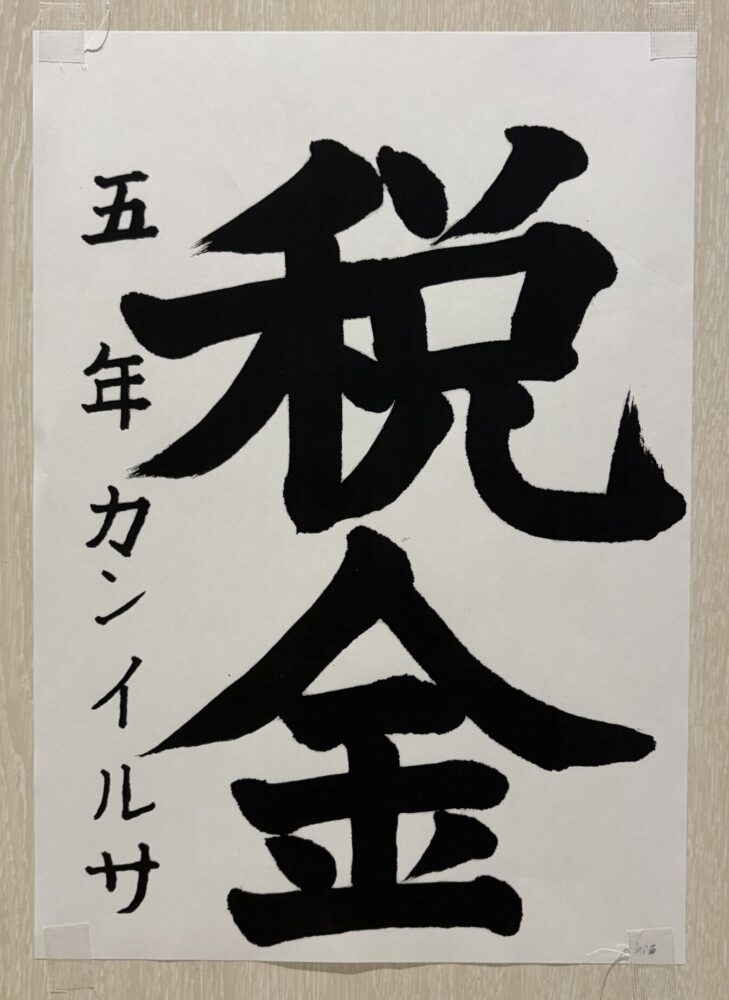 税金
五年カンイルサ